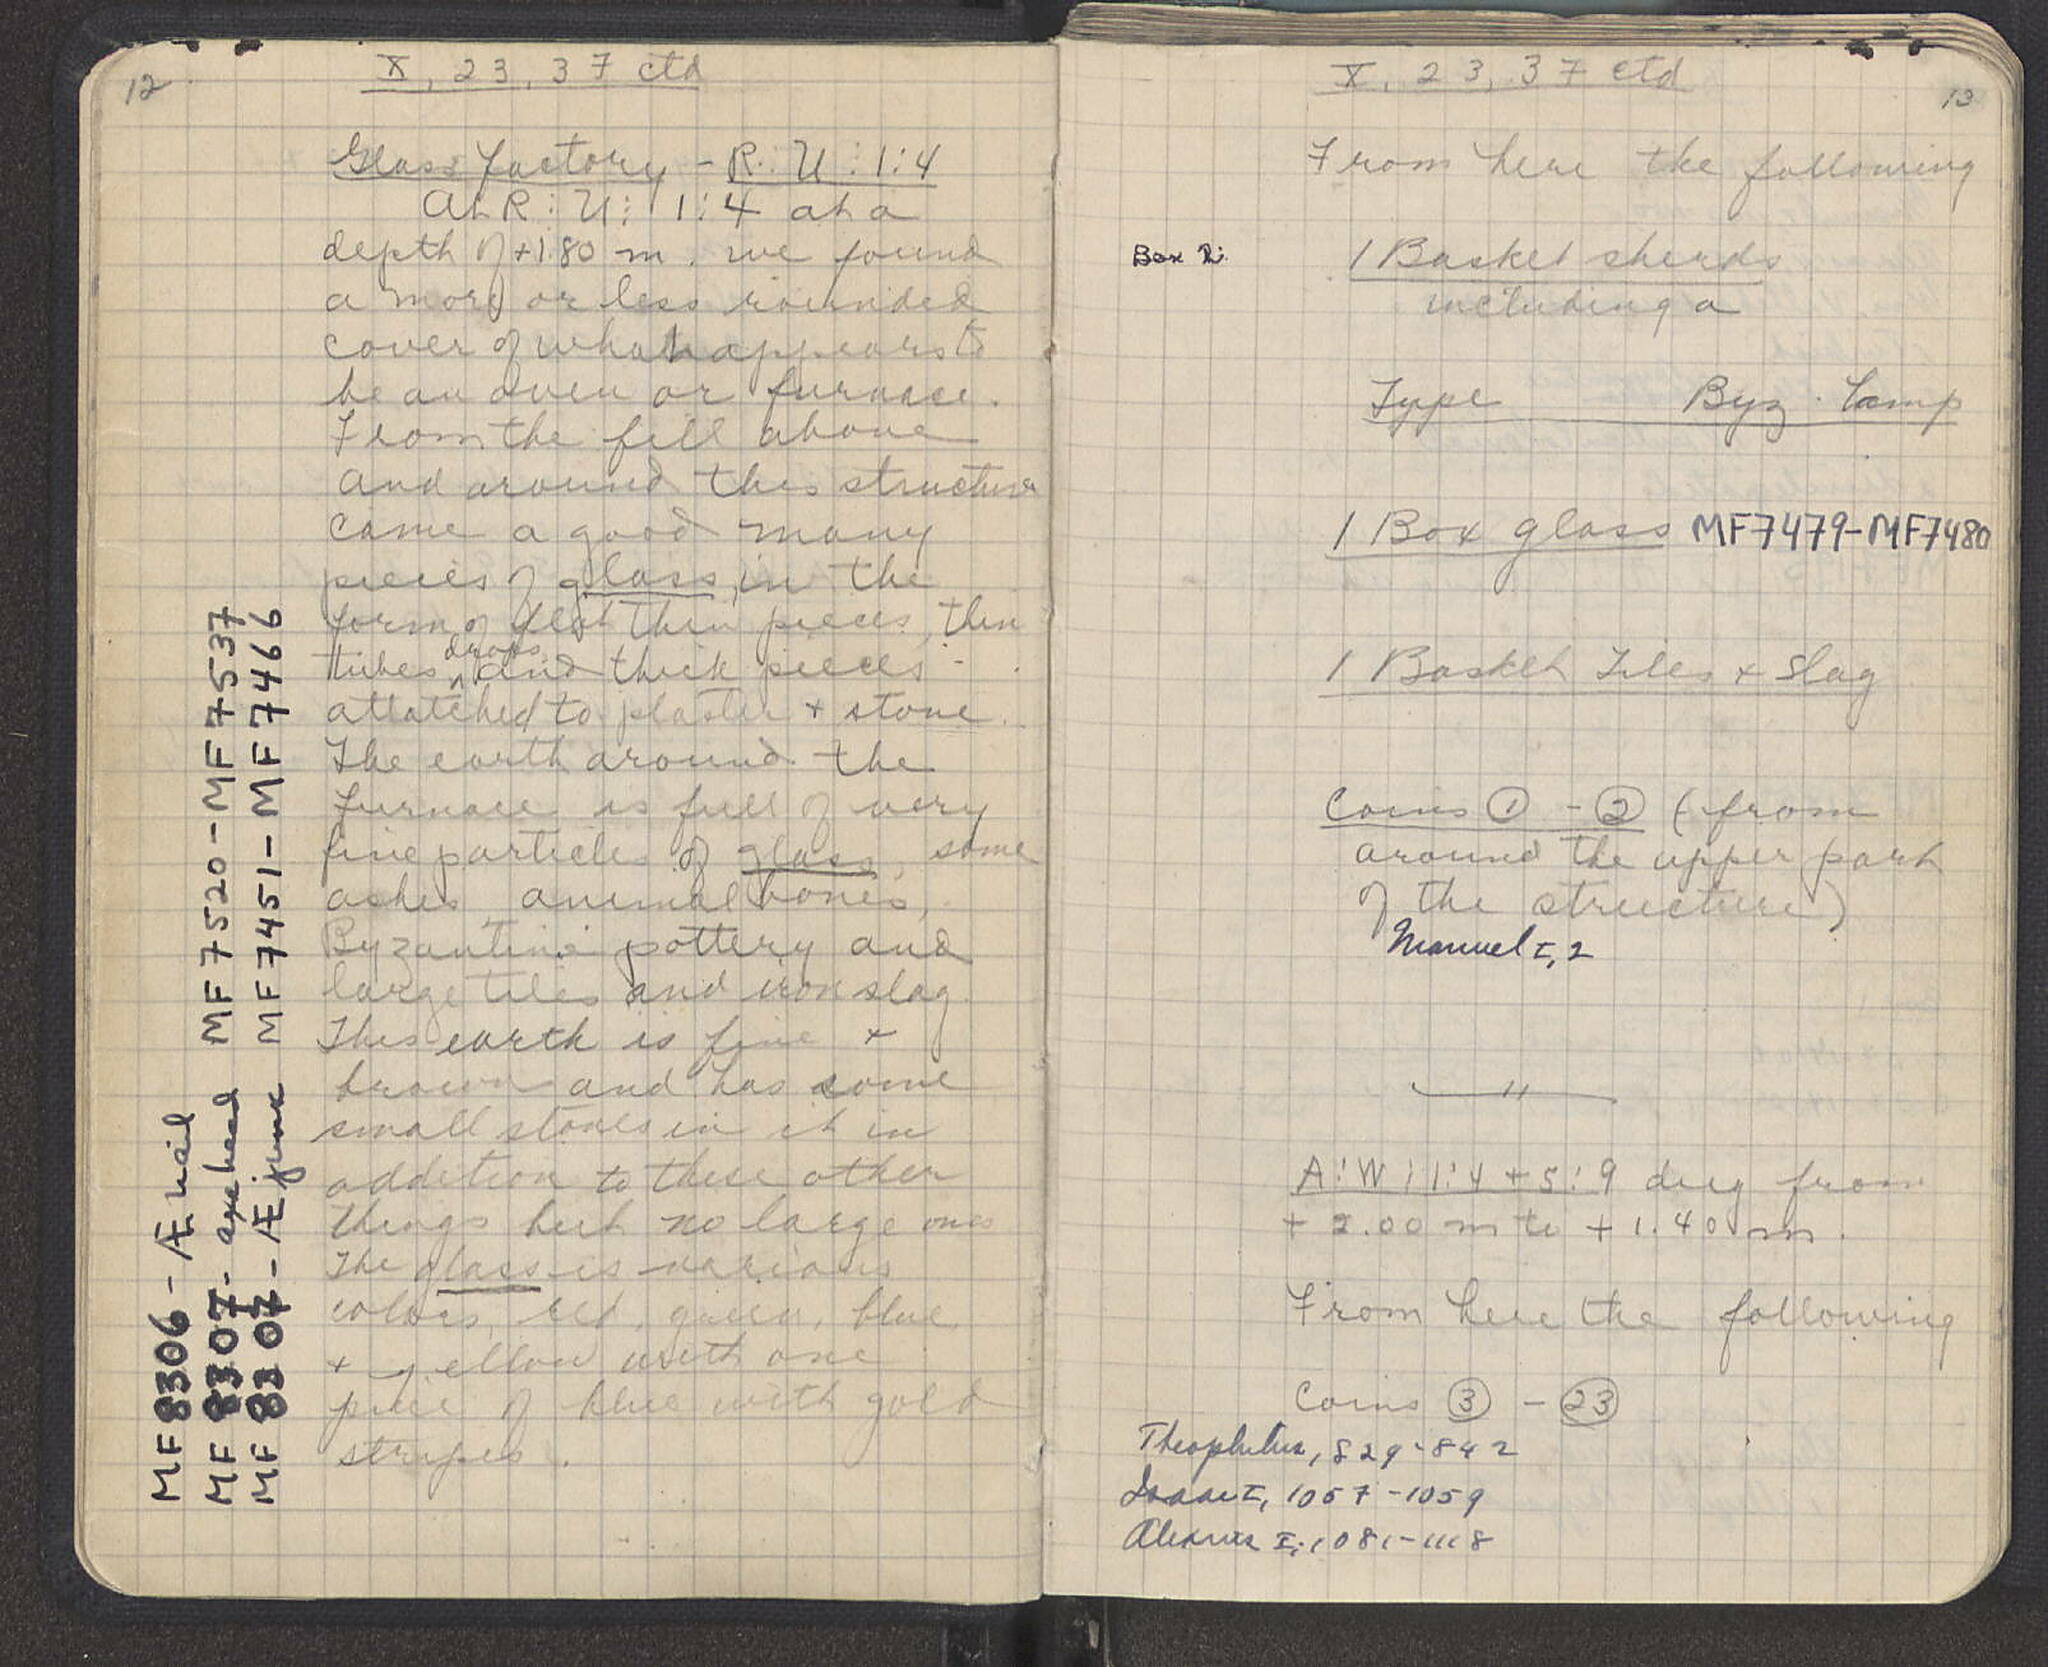 12
X, 23, 37 ctd
Glass factory - R:U:1:4
At R:U:1:4 at a
depth of +1.80 m. we found
a more or less rounded
cover of what appears to
be an oven or furnace.
From the fill above
and around this structure
came a good many
pieces of glass, in the
form of flat thin pieces, thin
tubes, drops and thick pieces -
attatched to plaster + stone.
The earth around the
furnace is full of very
fine particles of glass, some
ashes animal bones,
Byzantine pottery and
large tiles and iron slag.
This earth is fine +
brown and has some
small stones in it in
addition to these other
things but no large ones
The glass is various
colors, red, green, blue,
+ yellow with one
piece of blue with gold
stripes.
MF 8306 - Æ nail
MF 8307 - axe head MF 7520 - MF 7537
MF 8307 - Æ junk MF 7451 - MF 7466
13
X, 23, 37 ctd
From here the following
Box
1 Basket sherds
including a
Type Byz. Lamp
1 Box glass MF7479-MF7480
1 Basket Tiles + Slag
Coins 1 - 2 (from
around the upper part
of the structure)
Manuel I, 2
"
A:W:1:4 + 5:9 dug from
+ 2.00 m to + 1.40 m.
From here the following
Coins 3 - 23
Theophilus, 829-842
Isaac I, 1057-1059
Alexius I, 1081-1118